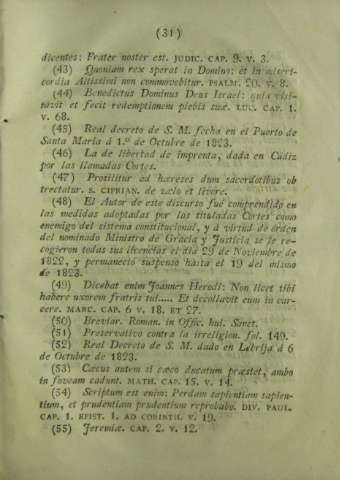 (31)
dicentes: Frater noster est. JUDIC. CAP. 9. v. 3.
(43) Quoniam rex sperat in Domino: et in miseri-
cordia Altissimi non commovebitur. PSALM. 20. v. 8.
(44) Benedictus Dominus Deus Israel: quia visi-
tavit et fecit redemptionem plebis suæ. LUC. CAP. 1.
v. 68.
(45) Real decreto de S. M. fecha en el Puerto de
Santa María á 1.º de Octubre de 1823.
(46) La de libertad de imprenta, dada en Cádiz
por las llamadas Cortes.
(47) Prosilitur ad hæreses dum sacerdotibus ob
trectatur. S. CIPRIAN. de zelo et livore.
(48) El Autor de este discurso fué comprendido en
las medidas adoptadas por las tituladas Cortes como
enemigo del sistema constitucional, y á virtud de órden
del nominado Ministro de Gracia y Justicia se le re-
cogieron todas sus licencias el dia 29 de Noviembre de
1822, y permaneció suspenso hasta el 19 del mismo
de 1823.
(49) Dicebat enim Joannes Herodi: Non licet tibi
habere uxorem fratris tui..... Et decollavit eum in car-
cere. MARC. CAP. 6 v. 18. ET 27.
(50) Breviar. Roman. in Offic. huj. Sanct.
(51) Preservativo contra la irreligion. fol. 140.
(52) Real Decreto de S. M. dado en Lebrija á 6
de Octubre de 1823.
(53) Cæcus autem si cæco ducatum præstet, ambo
in foveam cadunt. MATH. CAP. 15. v. 14.
(54) Scriptum est enim: Perdam sapientiam sapien-
tium, et prudentiam prudentium reprobabo. DIV. PAUL.
CAP. 1. EPIST. 1. AD CORINTH. v. 19.
(55) Jeremiæ. CAP. 2. v. 12.